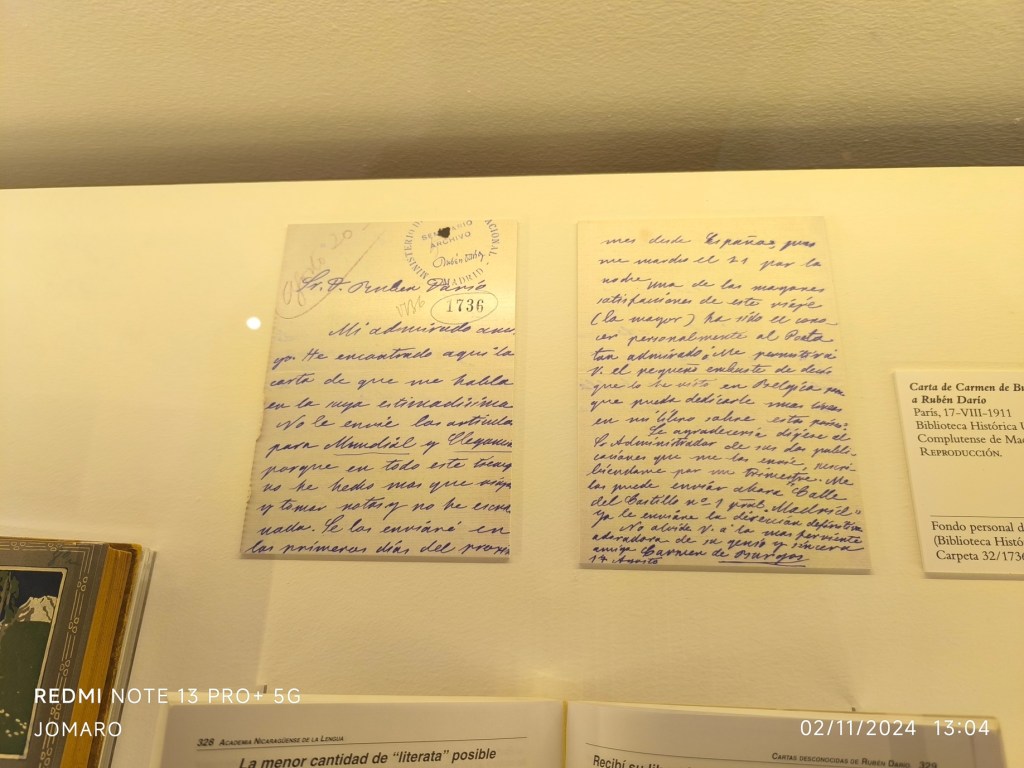 Agosto-20-
MINISTERIO DE NACIONAL - MADRID
SEMINARIO
ARCHIVO
Rubén Darío
Sr. D. Ruben Dario
1736
1736
Mi admirado ami-
go: He encontrado aqui la
carta de que me habla
en la suya estimadisima
No le envie los articulos
para Mundial y Elegancias
porque en todo este tiempo
no he hecho mas que viajar
y tomar notas y no he escrito
nada. Se los enviaré en
los primeros dias del proxi
mes desde España, pues
me marcho el 21 por la
noche Una de las mayores
satisfaciones de este viaje
(la mayor) ha sido el cono-
cer personalmente al Poeta
tan admirado ¿Me permitirá
V. el pequeño embuste de decir
que lo he visto en Belgica para
que pueda dedicarle unas lineas
en mi libro sobre estos paises?
Le agradeceria dijese al
Administrador de sus dos publi-
caciones que me las envie, suscri-
biendome por un trimestre. Me
las puede enviar ahora "Calle
del Castillo nº 1 Madrid"
Ya le enviaré la dirección definitiva
No olvide V. a la mas ferviente
adoradora de su genio y sincera
amiga Carmen de Burgos
17 Agosto
Carta de Carmen de Bu
a Rubén Darío
Paris, 17-VIII-1911
Biblioteca Histórica U
Complutense de Ma
REPRODUCCIÓN.
Fondo personal d
(Biblioteca Histó
Carpeta 32/1736
328 ACADEMIA NICARAGÜENSE DE LA LENGUA
La menor cantidad de "literata" posible
CARTAS DESCONOCIDAS DE RUBÉN DARÍO 329
Recibí su
REDMI NOTE 13 PRO+ 5G
JOMARO
02/11/2024 13:04